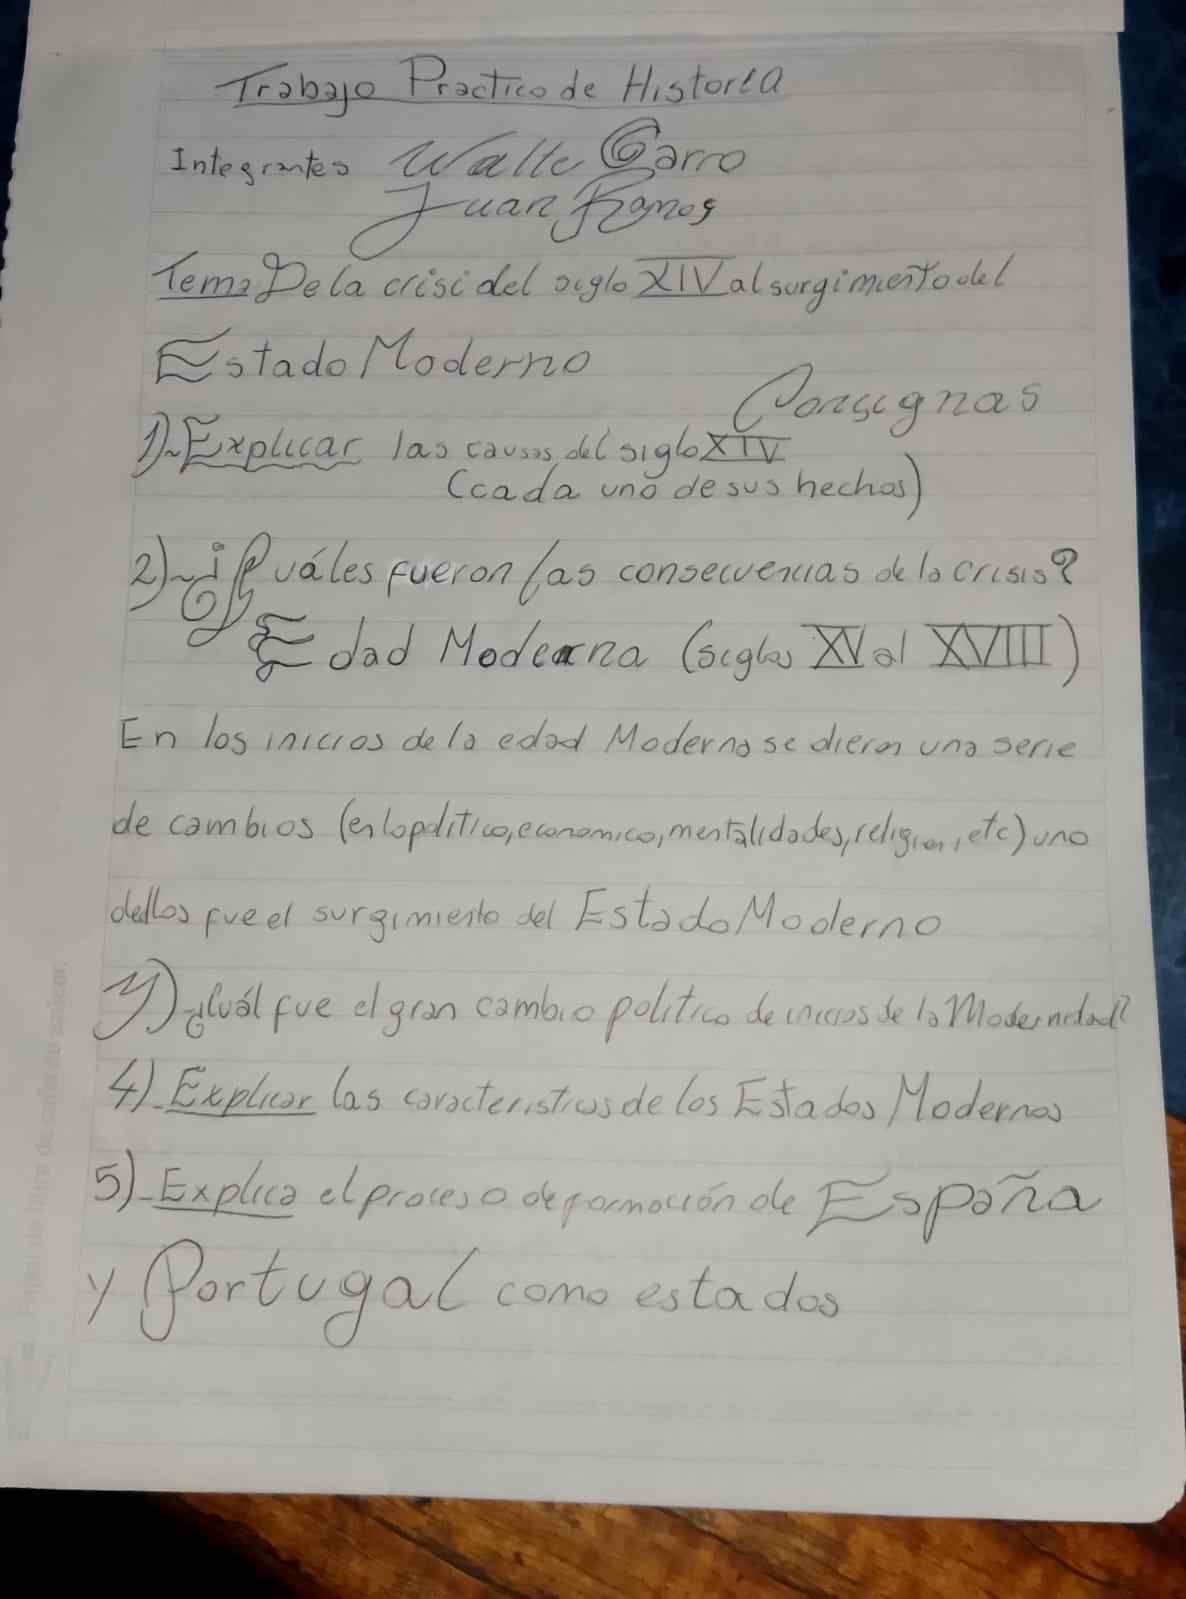 Trabajo Practico de Historia
Integrantes Walte Garro
Juan Ramos
Tema De la crisi del siglo XIV al surgimiento del
Estado Moderno
Consignas
1)-Explicar las causas del siglo XIV
(cada uno de sus hechos)
2)-¿Cuáles fueron las consecuencias de la crisis?
Edad Moderna (siglos XV al XVIII)
En los inicios de la edad Moderna se dieron una serie
de cambios (en lo politico, economico, mentalidades, religion, etc) uno
dellos fue el surgimiento del Estado Moderno
3)-¿Cuál fue el gran cambio politico de inicios de la Modernidad?
4)-Explicar las caracteristicas de los Estados Modernos
5)-Explica el proceso de formación de España
y Portugal como estados